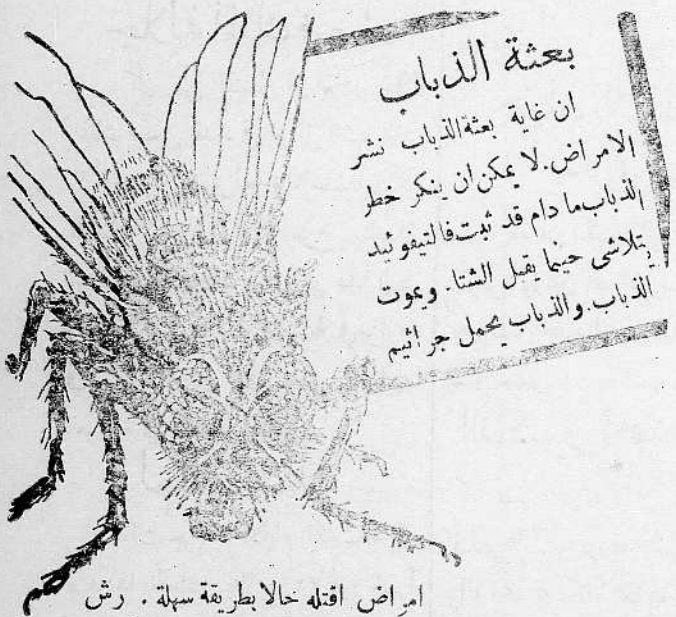 بعثة الذباب
ان غاية بعثة الذباب نشر
الامراض. لا يمكن ان ينكر خطر
الذباب ما دام قد ثبت فالتيفوئيد
يتلاشى حينما يقبل الشتا. ويموت
الذباب. والذباب يحمل جراثيم
امراض اقتله حالا بطريقة سهلة. رش